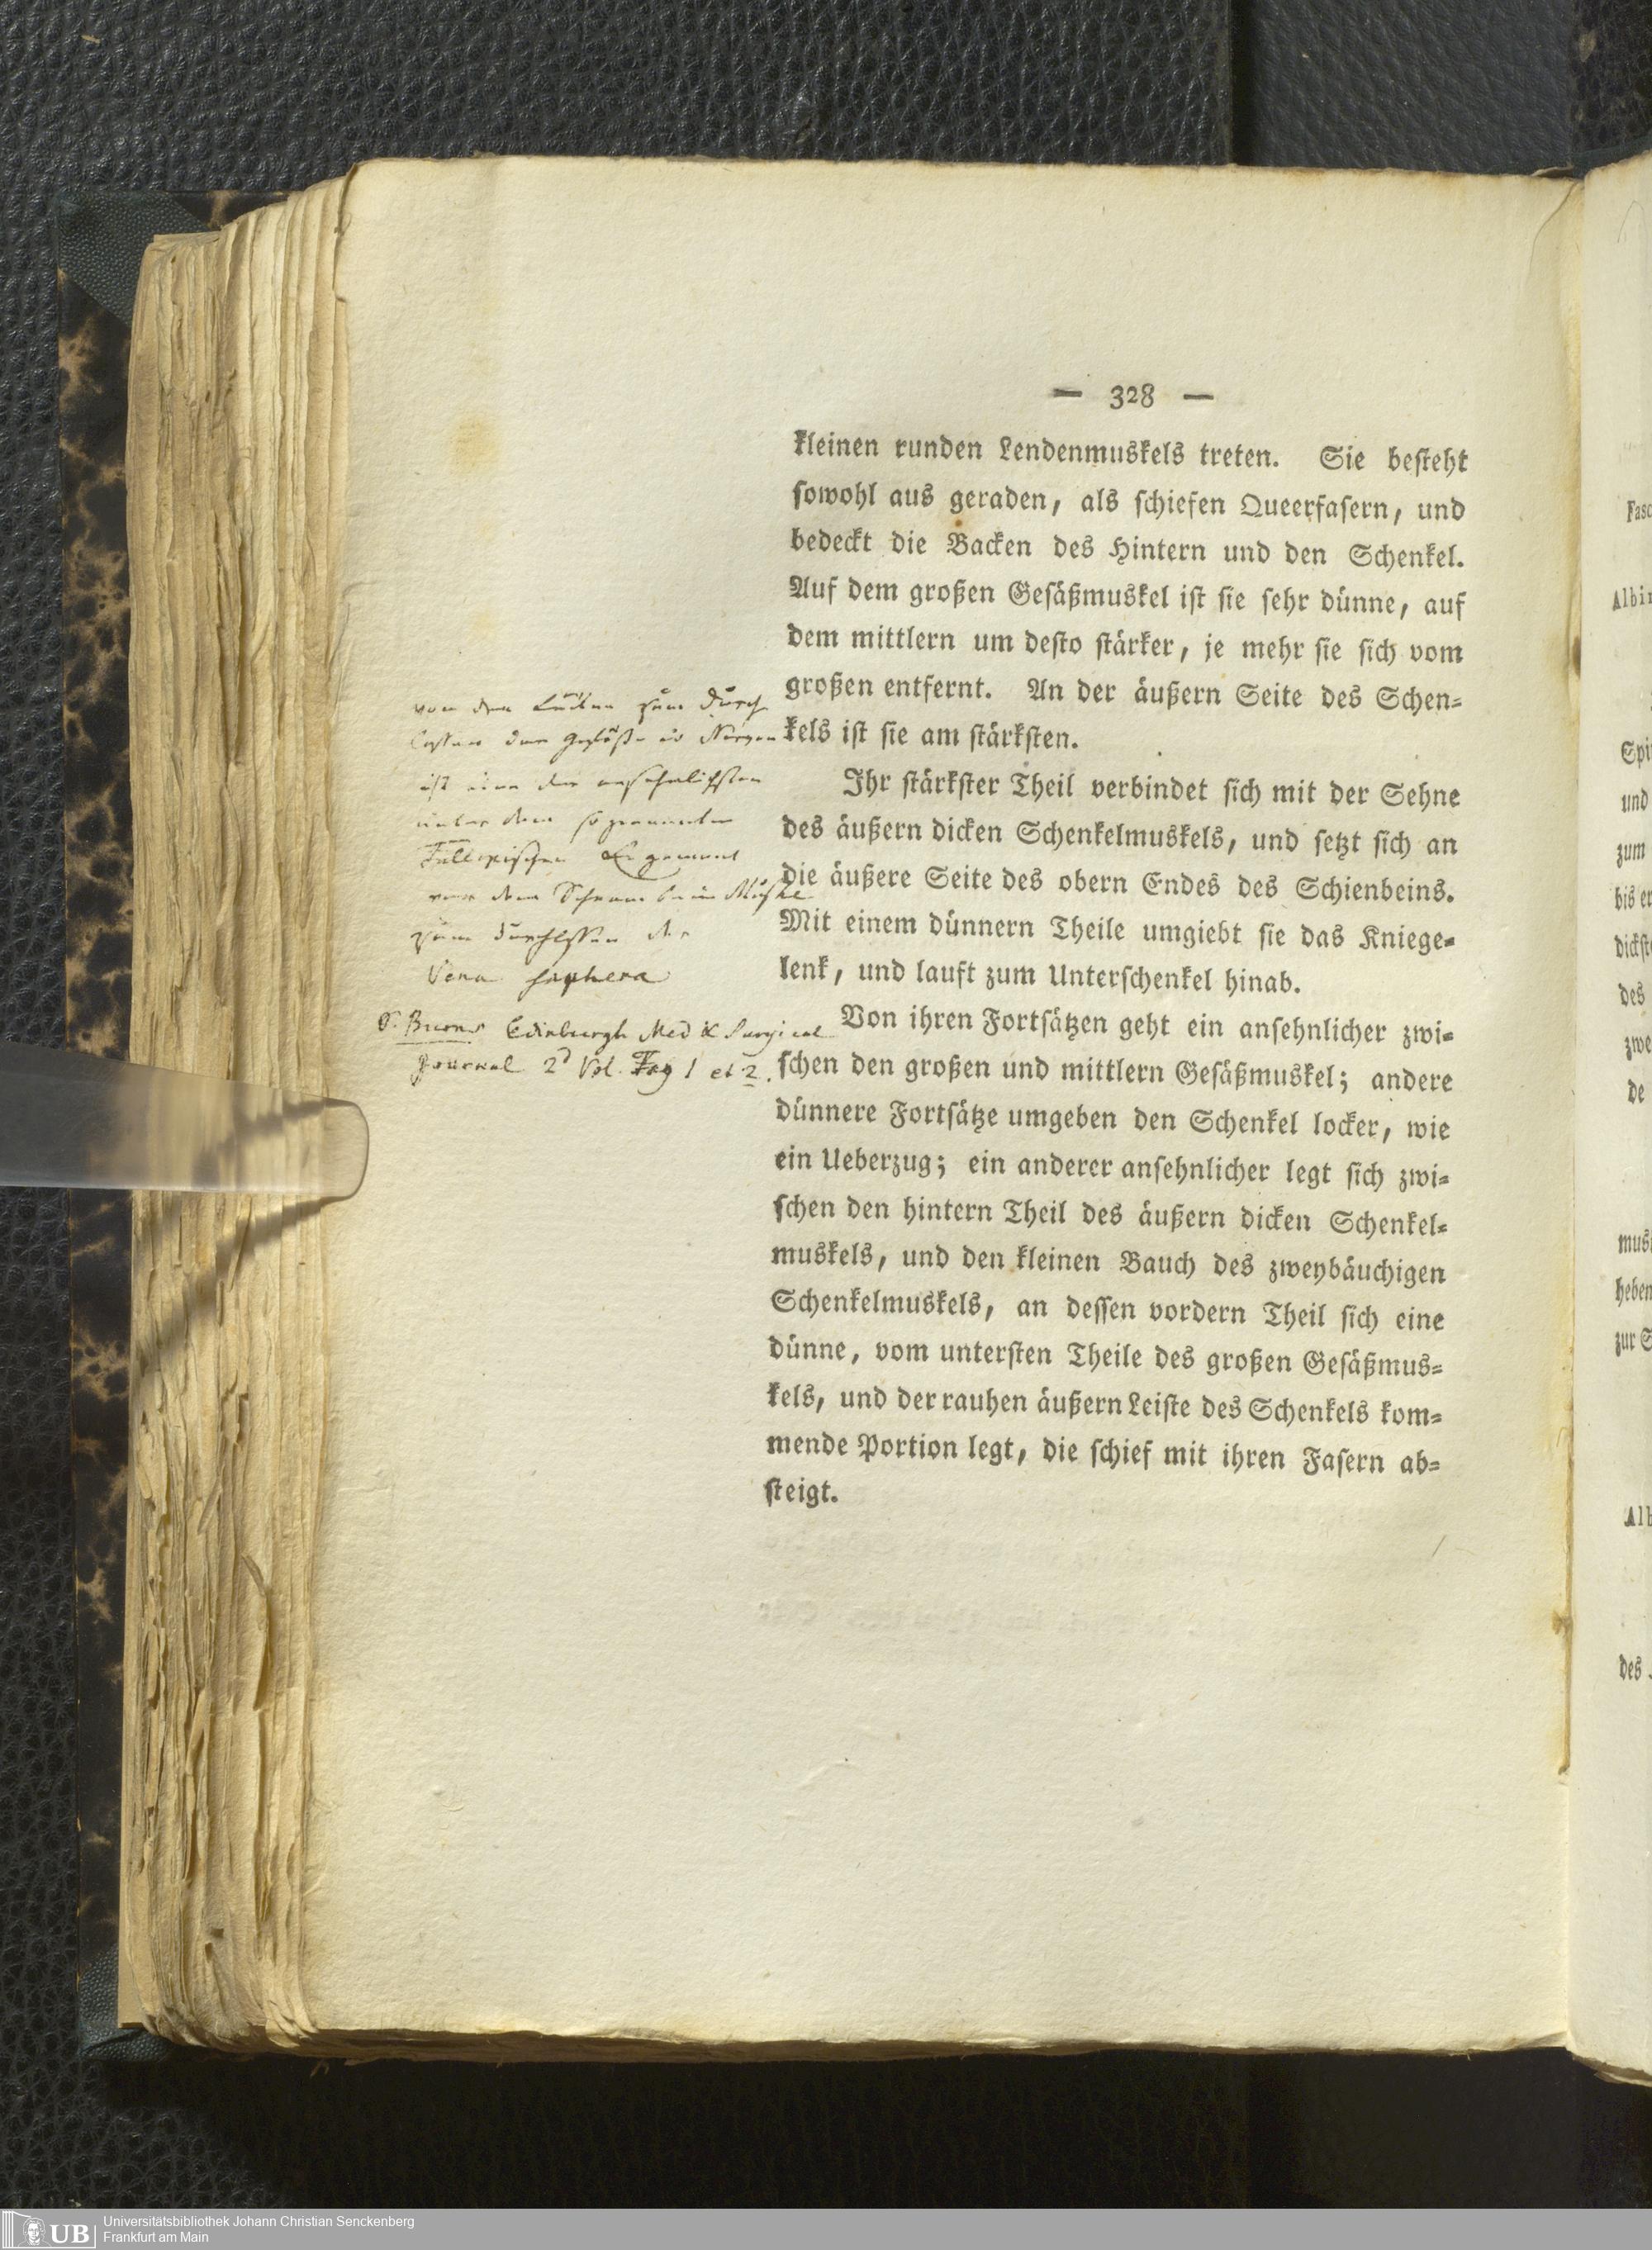 — 328 —
kleinen runden Lendenmuskels treten. Sie besteht
ſowohl aus geraden, als ſchiefen Queerfaſern, und
bedeckt die Backen des Hintern und den Schenkel.
Auf dem großen Geſäßmuskel iſt ſie ſehr dünne, auf
dem mittlern um deſto ſtärker, je mehr ſie ſich vom
großen entfernt. An der äußern Seite des Schen⸗
kels iſt ſie am ſtärkſten.
Ihr ſtärkſter Theil verbindet ſich mit der Sehne
des äußern dicken Schenkelmuskels, und ſetzt ſich an
die äußere Seite des obern Endes des Schienbeins.
Mit einem dünnern Theile umgiebt ſie das Kniege⸗
lenk, und lauft zum Unterſchenkel hinab.
Von ihren Fortſätzen geht ein anſehnlicher zwi⸗
ſchen den großen und mittlern Geſäßmuskel; andere
dünnere Fortſätze umgeben den Schenkel locker, wie
ein Ueberzug; ein anderer anſehnlicher legt ſich zwi⸗
ſchen den hintern Theil des äußern dicken Schenkel⸗
muskels, und den kleinen Bauch des zweybäuchigen
Schenkelmuskels, an deſſen vordern Theil ſich eine
dünne, vom unterſten Theile des großen Geſäßmus⸗
kels, und der rauhen äußern Leiſte des Schenkels kom⸗
mende Portion legt, die ſchief mit ihren Faſern ab⸗
ſteigt.
von den Lücken zum Durch
lassen der Gefäße u Nerven
ist eine der ansehnlichsten
unter dem sogenannten
Fallopischen Ligament
vor dem
zum durchlassen der
Vena saphena
S. Burns Edinburgh Med & Surgical
Journal 2d Vol. 1 et 2.
Fasc
Albin
Spi
und
zum
bis er
dickst
des
zwe
de
mus
heben
zur S
Alb
des
UB
Universitätsbibliothek Johann Christian Senckenberg
Frankfurt am Main